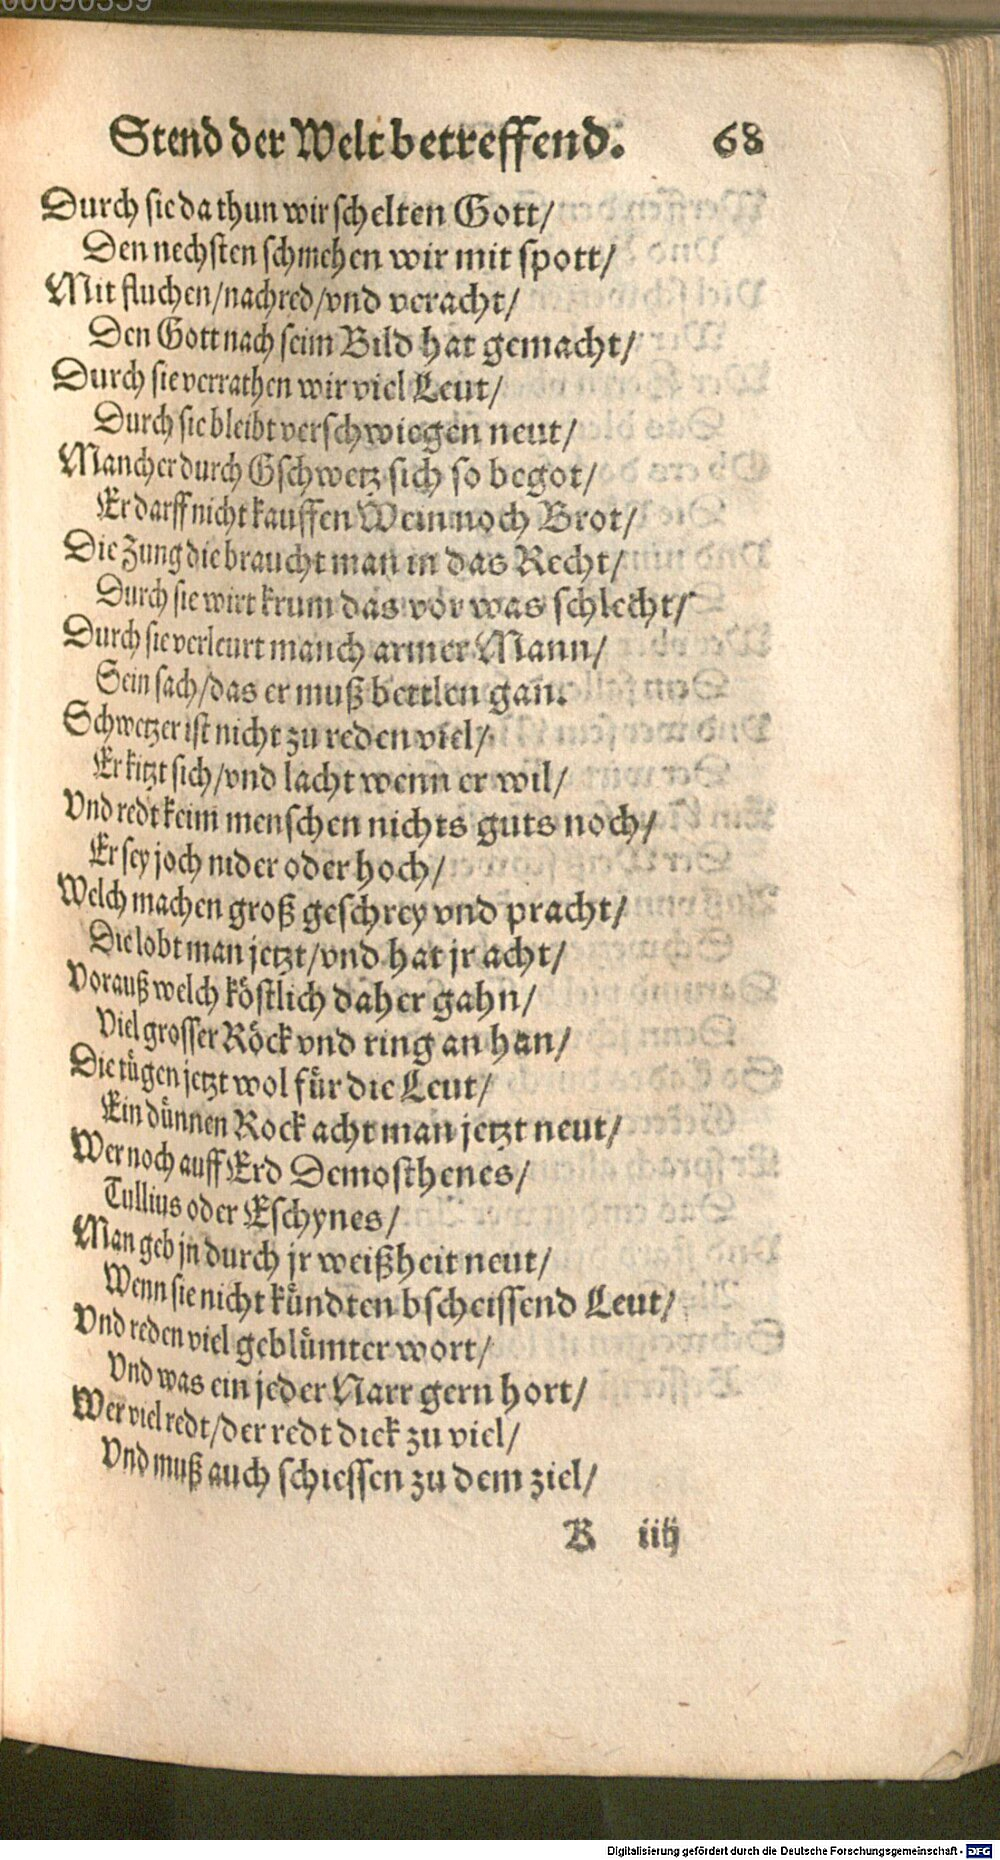 00090359
Stend der Welt betreffend. 68
Durch sie da thun wir schelten Gott/
Den nechsten schmehen wir mit spott/
Mit fluchen/nachred/vnd veracht/
Den Gott nach seim Bild hat gemacht/
Durch sie verrathen wir viel Leut/
Durch sie bleibt verschwiegen neut/
Mancher durch Gschwetz sich so begot/
Er darff nicht kauffen Wein noch Brot/
Die Zung die braucht man in das Recht/
Durch sie wirt krum das vor was schlecht/
Durch sie verleurt manch armer Mann/
Sein sach/das er muß bettlen gan.
Schwetzer ist nicht zu reden viel/
Er kitzt sich/vnd lacht wenn er wil/
Vnd redt keim menschen nichts guts noch/
Er sey joch nider oder hoch/
Welch machen groß geschrey vnd pracht/
Die lobt man jetzt/vnd hat jr acht/
Vorauß welch köstlich daher gahn/
Viel grosser Röck vnd ring an han/
Die tügen jetzt wol für die Leut/
Ein dünnen Rock acht man jetzt neut/
Wer noch auff Erd Demosthenes/
Tullius oder Eschynes/
Man geb jn durch jr weißheit neut/
Wenn sie nicht kündten bscheissend Leut/
Vnd reden viel geblümter wort/
Vnd was ein jeder Narr gern hort/
Wer viel redt/der redt dick zu viel/
Vnd muß auch schiessen zu dem ziel/
B iiij
Digitalisierung gefördert durch die Deutsche Forschungsgemeinschaft - DFG